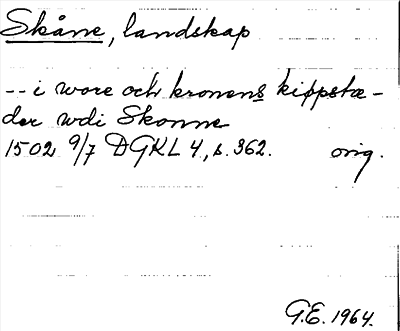 Skåne, landskap
-- i wore och kronens kippstæ-
der wdi Skonne
1502 9/7 DGKL 4, s. 362. orig.
G.E. 1964.